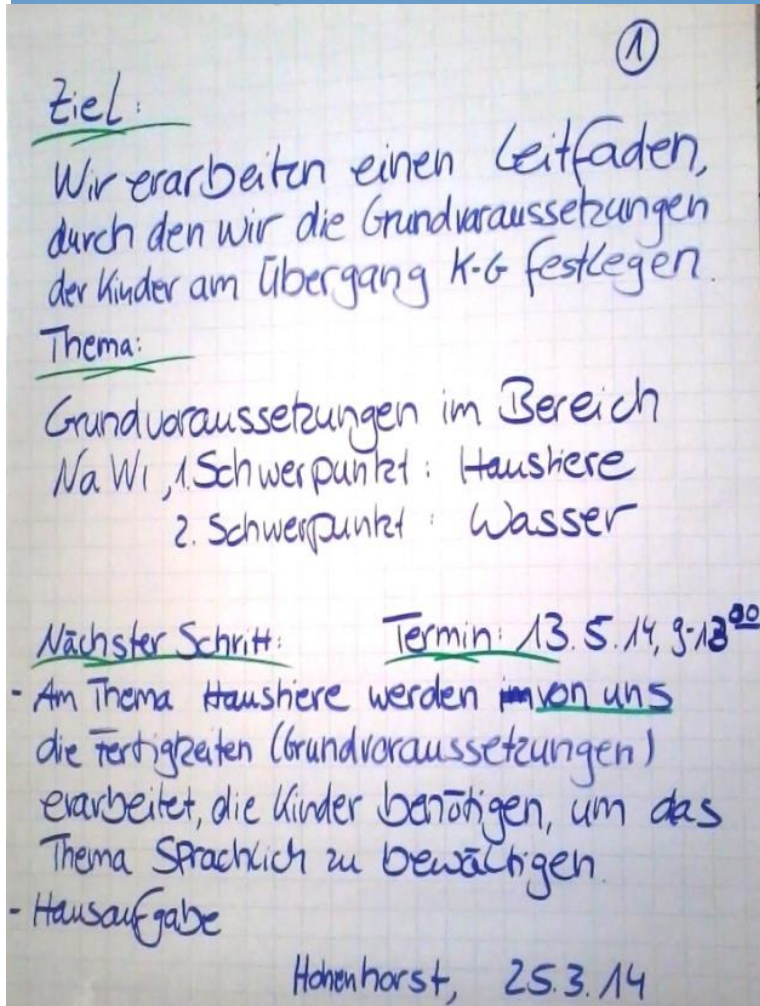 1
Ziel:
Wir erarbeiten einen Leitfaden,
durch den wir die Grundvoraussetzungen
der Kinder am Übergang K-G festlegen.
Thema:
Grundvoraussetzungen im Bereich
NaWi, 1. Schwerpunkt: Haustiere
2. Schwerpunkt: Wasser
Nächster Schritt: Termin: 13.5.14, 9-13⁰⁰
- Am Thema Haustiere werden von uns
die Fertigkeiten (Grundvoraussetzungen)
erarbeitet, die Kinder benötigen, um das
Thema Sprachlich zu bewältigen.
- Hausaufgabe
Hohenhorst, 25.3.14